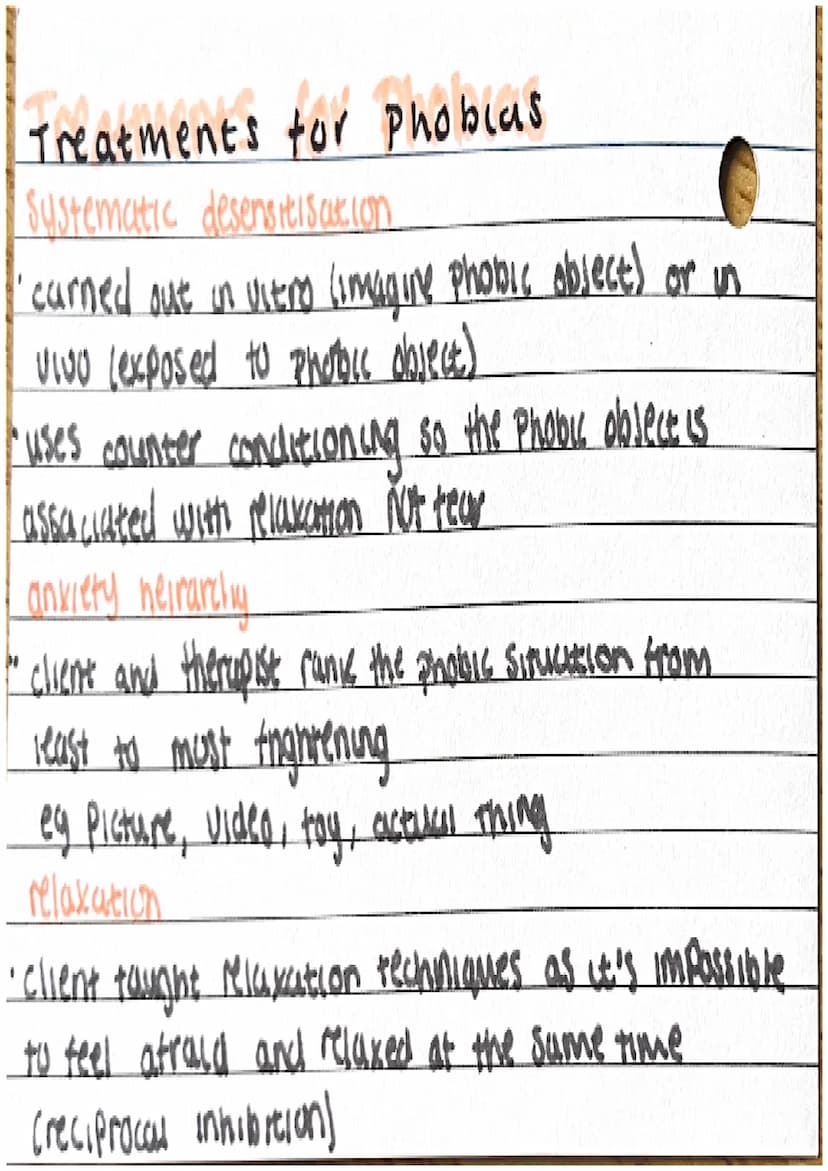 Treatments for Phobias
Systematic desensitisation
· carried out in vitro (imagine phobic object) or in
vivo (exposed to phobic object)
· uses counter conditioning so the phobic object is
associated with relaxation not fear
anxiety heirarchy
· client and therapist rank the phobic situation from
least to most frightening
eg picture, video, toy, actual thing
relaxation
· client taught relaxation techniques as it's impossible
to feel afraid and relaxed at the same time
(reciprocal inhibition)